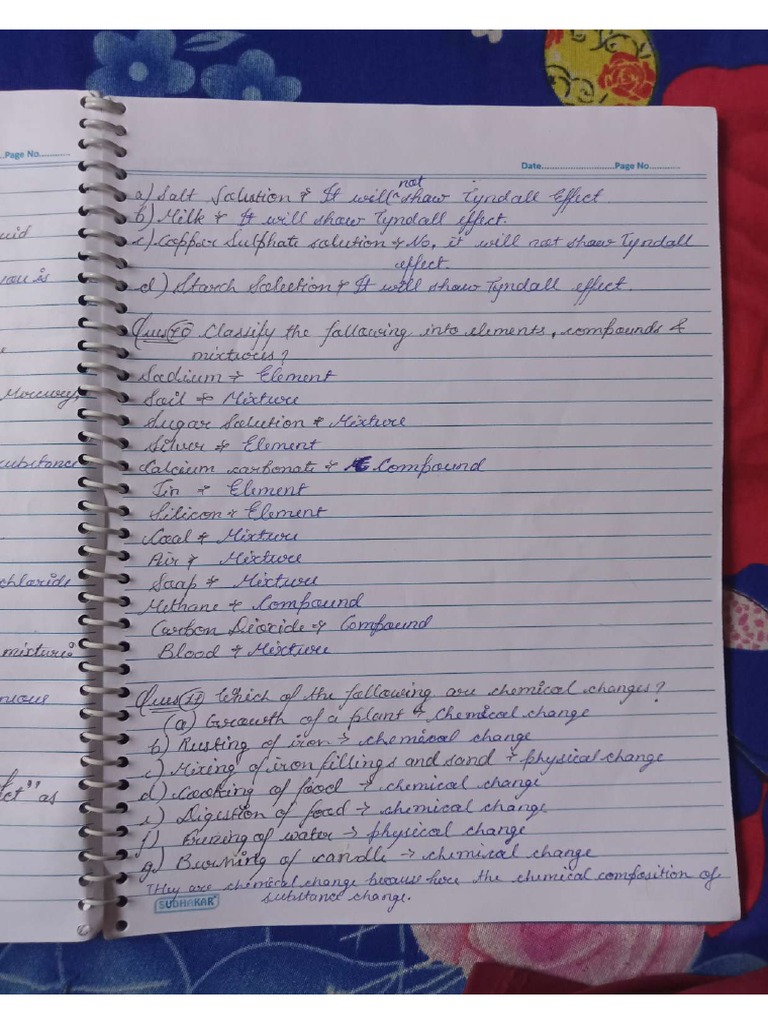 Page No............
Date........................Page No............
a) Salt Solution → It will not show Tyndall Effect.
b) Milk → It will show Tyndall effect.
c) Copper Sulphate solution → No, it will not show Tyndall
effect.
d) Starch Solution → It will show Tyndall effect.
Ques 10 Classify the following into elements, compounds &
mixtures?
Sodium → Element
Soil → Mixture
Sugar Solution → Mixture
Silver → Element
Calcium carbonate → Compound
Tin → Element
Silicon → Element
Coal → Mixture
Air → Mixture
Soap → Mixture
Methane → Compound
Carbon Dioxide → Compound
Blood → Mixture
Ques 11 Which of the following are chemical changes?
(a) Growth of a plant → chemical change
b) Rusting of iron → chemical change
c) Mixing of iron fillings and sand → physical change
d) Cooking of food → chemical change
e) Digestion of food → chemical change
f) Freezing of water → physical change
g) Burning of candle → chemical change
They are chemical change because here the chemical composition of
substance change.
SUDHAKAR
uid
you is
Mercury,
substance
chloride
mixture
ct" as